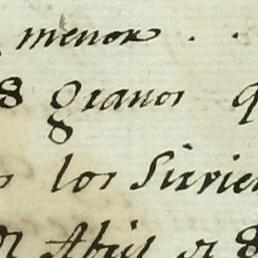 menor . .
8 granos q
los Sirvien
Abril